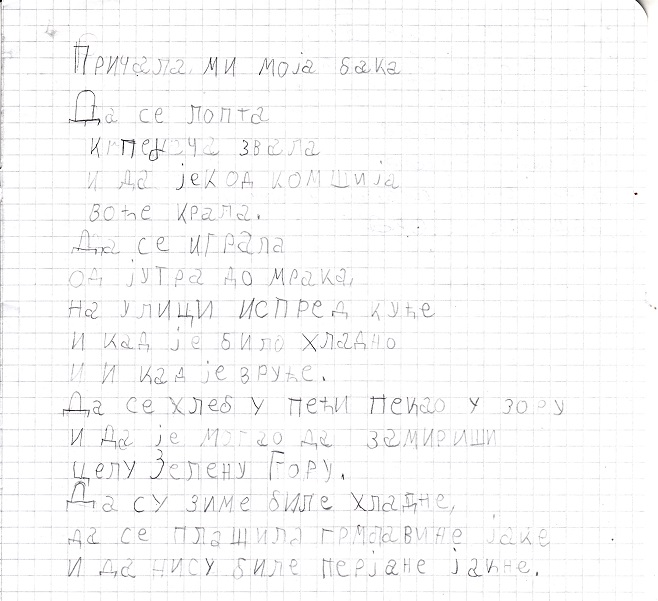 Причала ми моја бака
Да се лопта
крпењача звала
и да јек од комшија
воће крала.
Да се играла
од јутра до мрака,
на улици испред куће
и кад је било хладно
и и кад је вруће.
Да се хлеб у пећи пекао у зору
и да је могао да замириши
целу Зелену Гору.
Да су зиме биле хладне,
да се плашила грмљавине јаке
и да нису биле перјане јакне.